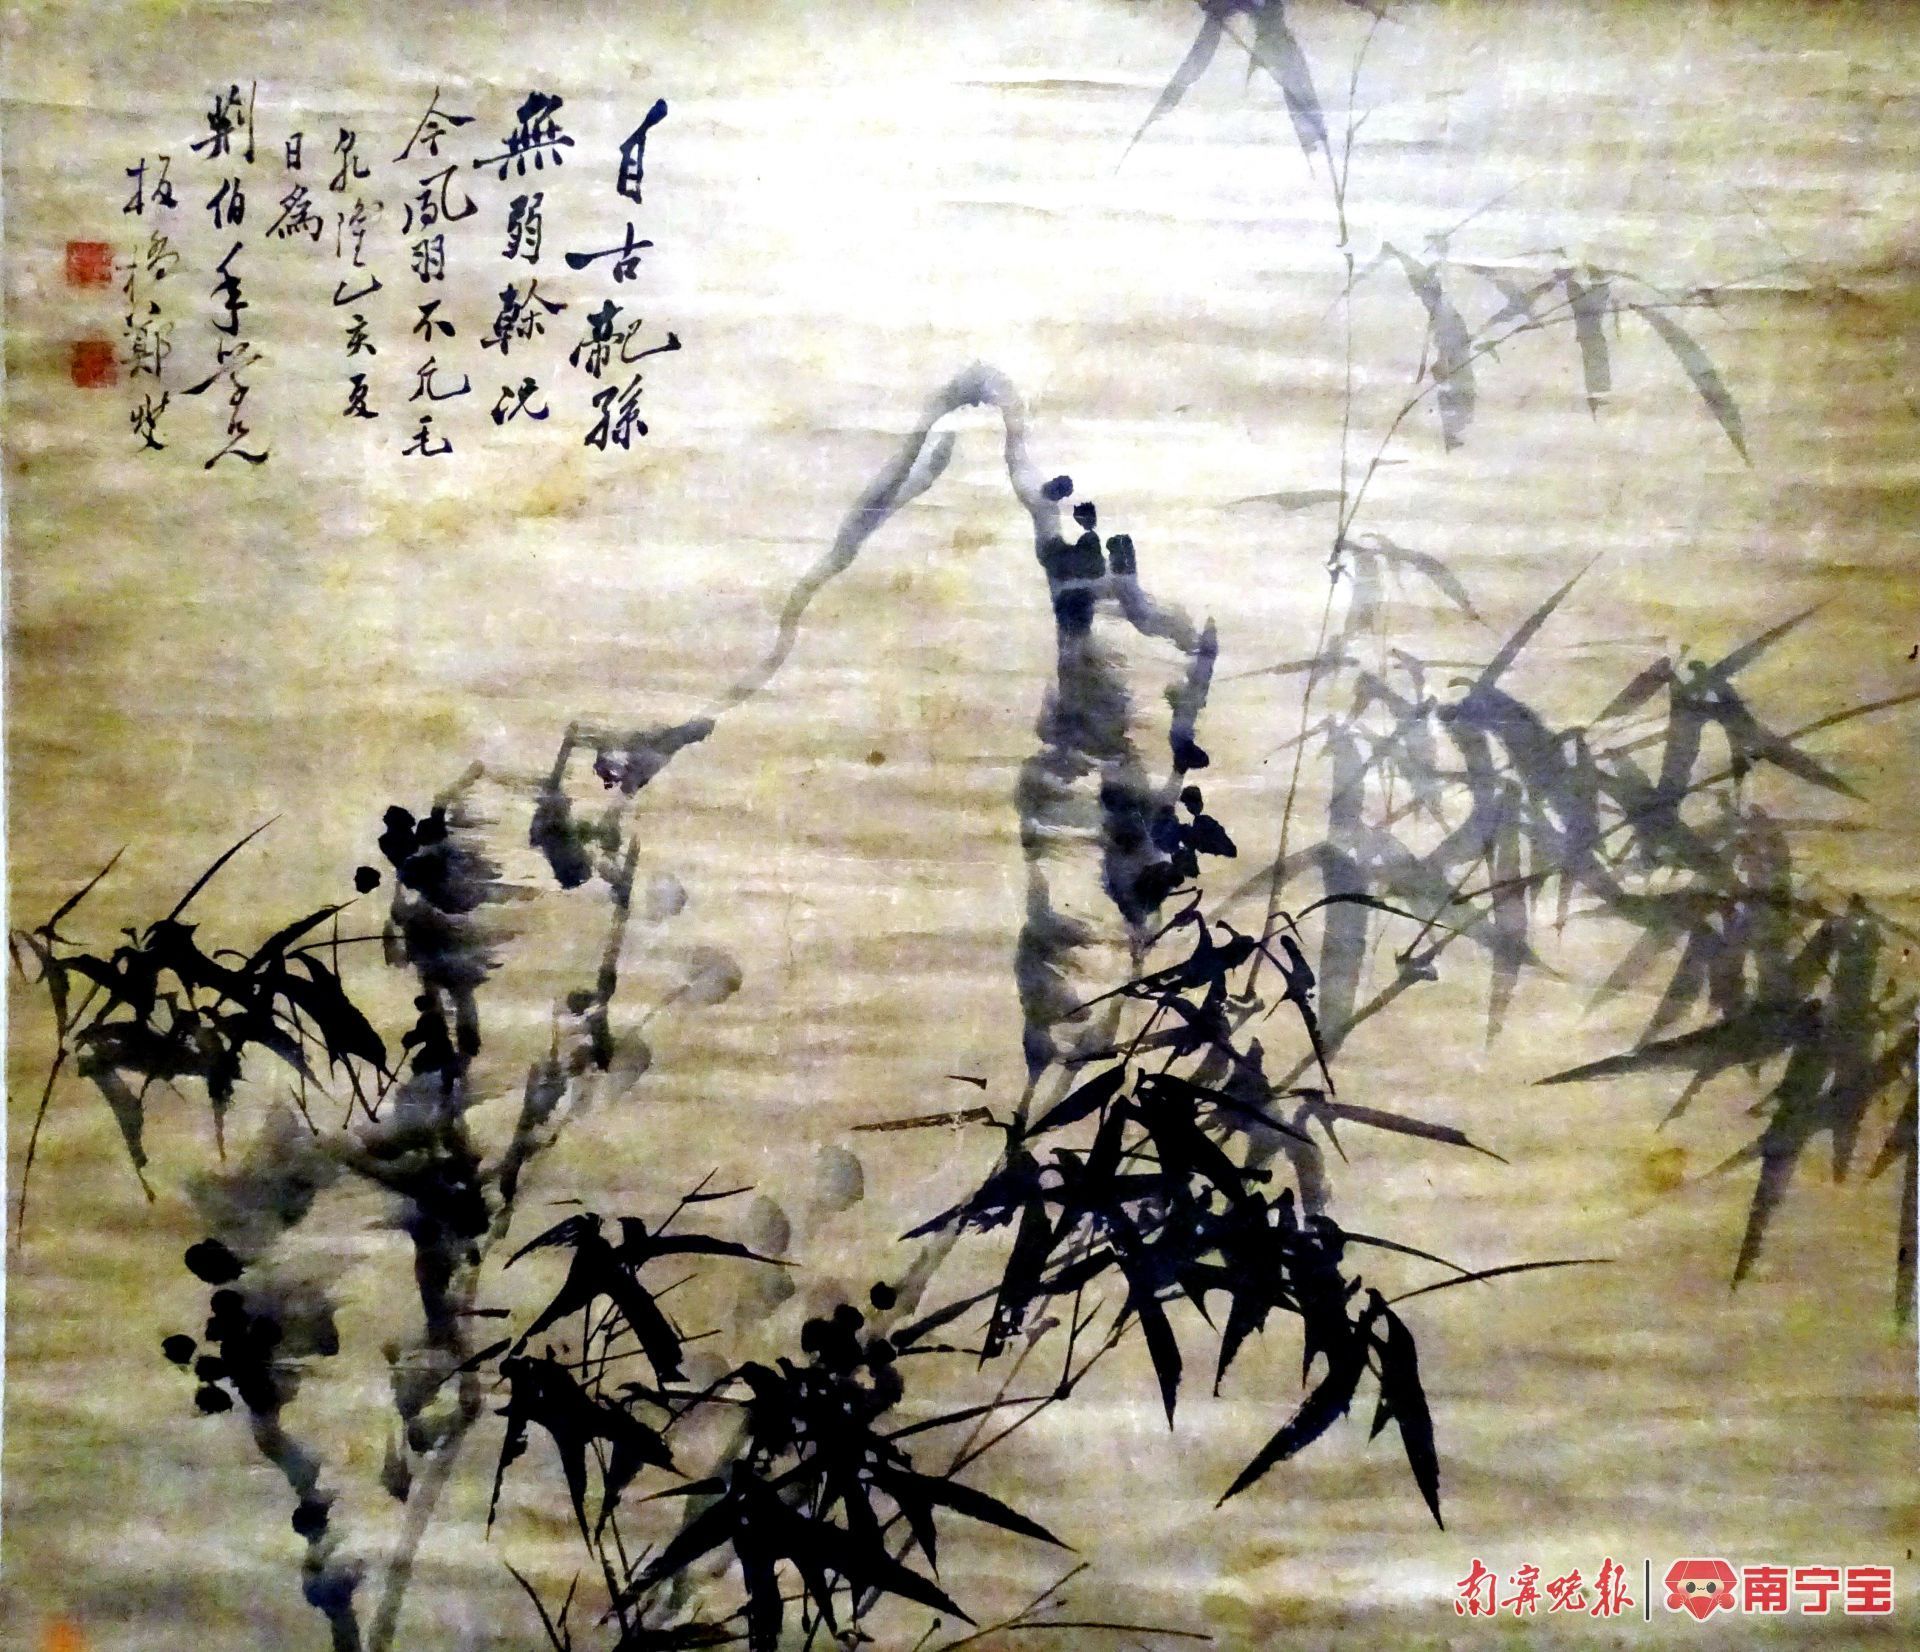 自古龍孫
無弱榦況
今鳳羽不凡毛
乾隆乙亥夏
日為
荊伯年學兄
板橋鄭燮
南寧晚報
南宁宝